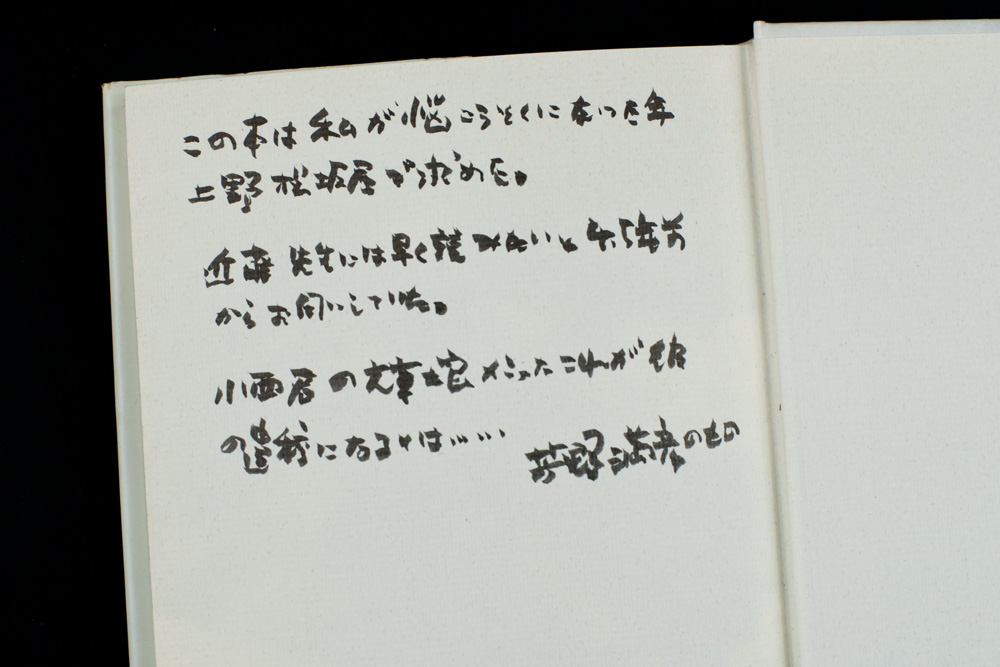 この本は私が悩こうそくになった年
上野松坂屋で求めた。
近藤先生には早く読みたいと 年前
からお伺いしていた。
小西君の文章 これが彼
の遺稿になるとは……
満彦のもの